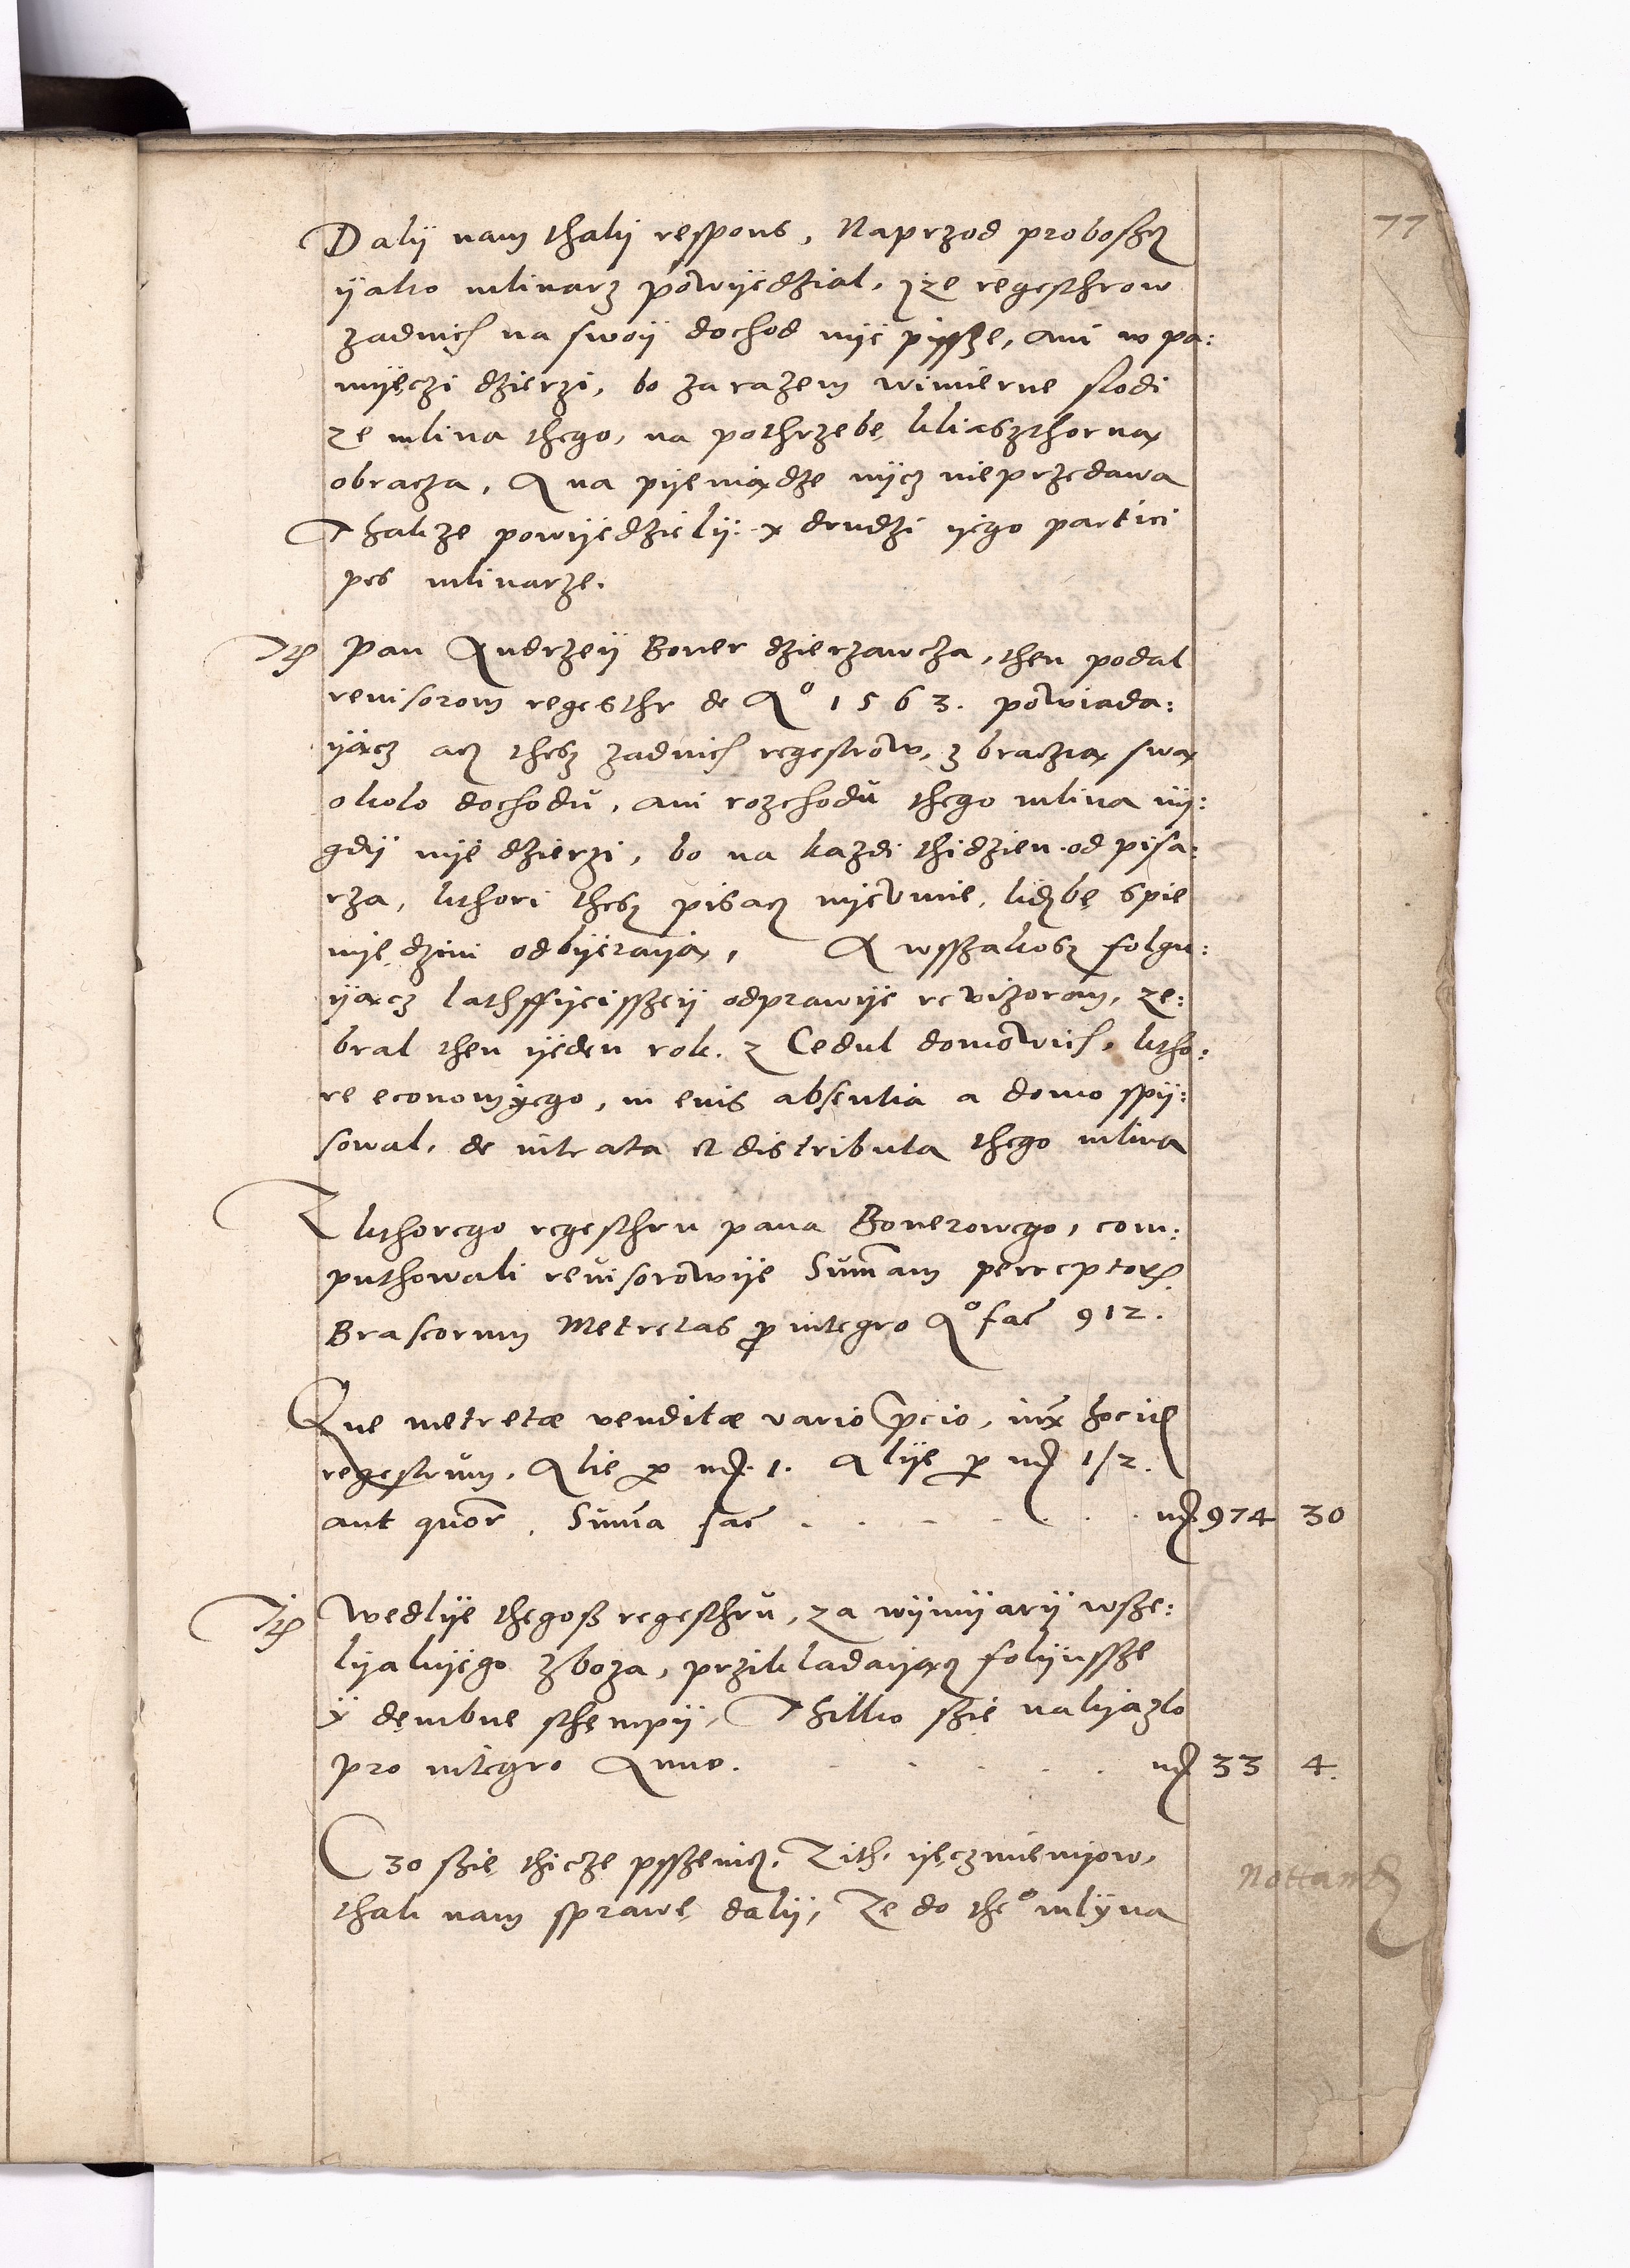 77
Dalÿ nam thakÿ respons, Naprzod proboszcz
ÿako mlinarz powÿedzial, ize regesthrow
zadnich na swoÿ dochod nÿe pissze, ani w pa:
mÿęczi dzierzi, bo zarazem wimierne slodi
ze mlina thego, na pothrzebę kliaszthorną
obracza, A na pÿeniądze nÿcz nieprzedawa
Thakze powÿedzielÿ y drudzi ÿego partici
pes mlinarze.
Itẽ Pan Andrzeÿ Boner dzierzawcza, then podal
revisorom regesthr de Aº 1563. powiada:
ÿącz acz thesz zadnich regestrow, z braczią swą
okolo dochodu, ani rozchodu thego mlina nÿ:
gdÿ nÿe dzierzi, bo na kazdi thidzien od pisa:
rza, kthori thesz pisacz nÿe umie, liczbę s pie
nÿędzmi odbÿeraÿą, A wsszakosz folgu:
ÿącz lathffÿeisszeÿ odprawÿe revizorom, ze:
bral then ÿeden rok z Cedul domowich, ktho:
re economÿego, in eius absentia a domo spÿ:
sowal, de intrata et distributa thego mlina
Z kthorego regesthru pana Bonerowego, com:
puthowali revisorowÿe Summam perceptorꝝ
Braseorum Metretas ꝓ integro Aº fac 912.
Que metretæ venditæ vario p̄cio, iux hocid
regestrum, Alie ꝑ mꝛ 1. Alÿe ꝑ mꝛ 1/2.
aut quor. Summa fac . . . . . . . mꝛ 974 30
Itẽ Wedlÿe thegosz regesthru, za wÿmÿarÿ wsze:
lÿakÿego zboza, przikladaÿącz folÿussze
ÿ dembne sthempÿ, Thilko szię nalÿazlo
pro integro Anno. . . . . . mꝛ 33 4.
Czo szię thicze psszenicz, Zith, ÿęczmienÿow,
thak nam sprawę dalÿ, Ze do theº mlÿna